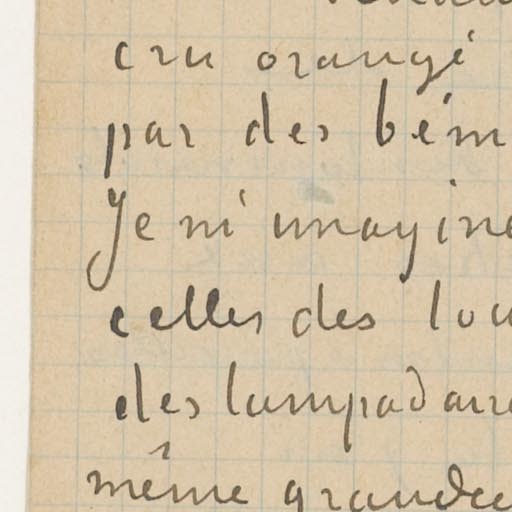 cru orangé
par des bém
Je m'imagine
celles des lou
des lampadaire
même grandeu